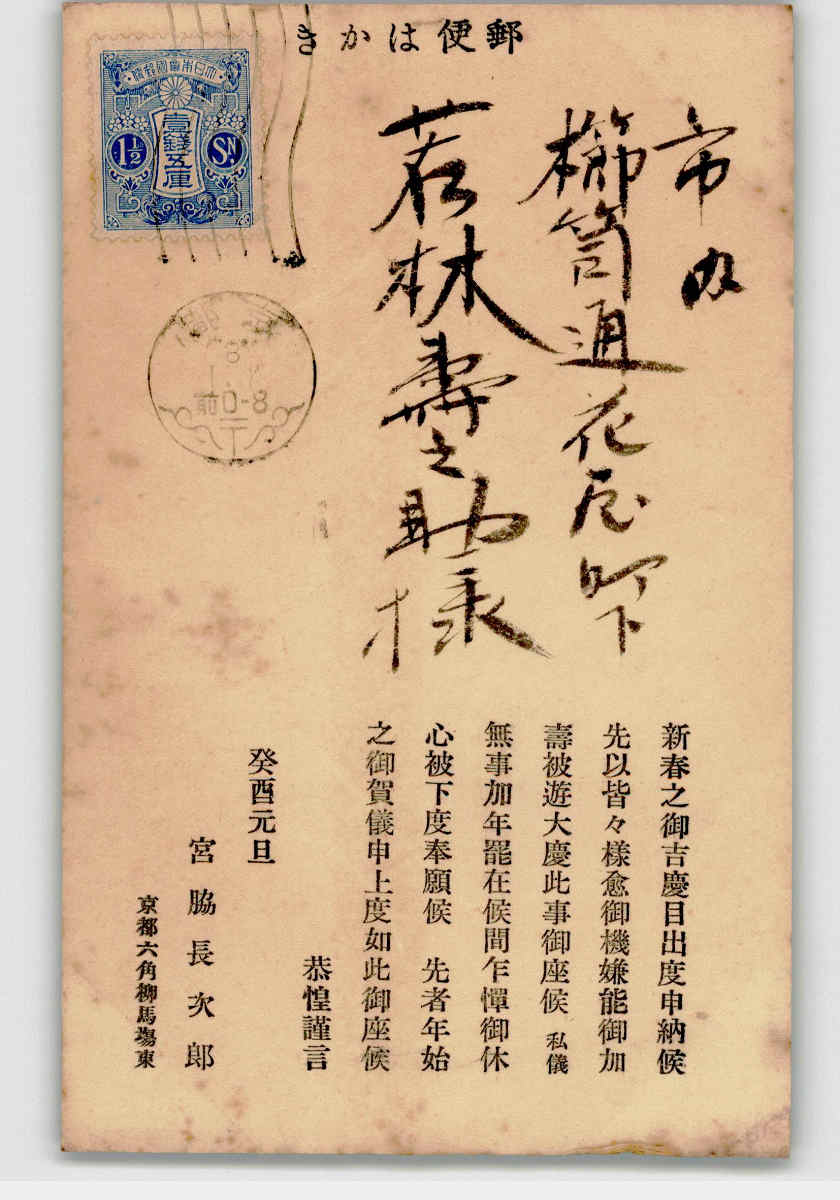 郵便はかき
大日本帝國郵便
壹錢五厘
1½
SN
8
前0-8
市内
櫛笥通花屋町下
若林壽之助様
新春之御吉慶目出度申納候
先以皆々樣愈御機嫌能御加
壽被遊大慶此事御座候 私儀
無事加年罷在候間乍憚御休
心被下度奉願候 先者年始
之御賀儀申上度如此御座候
恭惶謹言
癸酉元旦
宮脇長次郎
京都六角柳馬場東